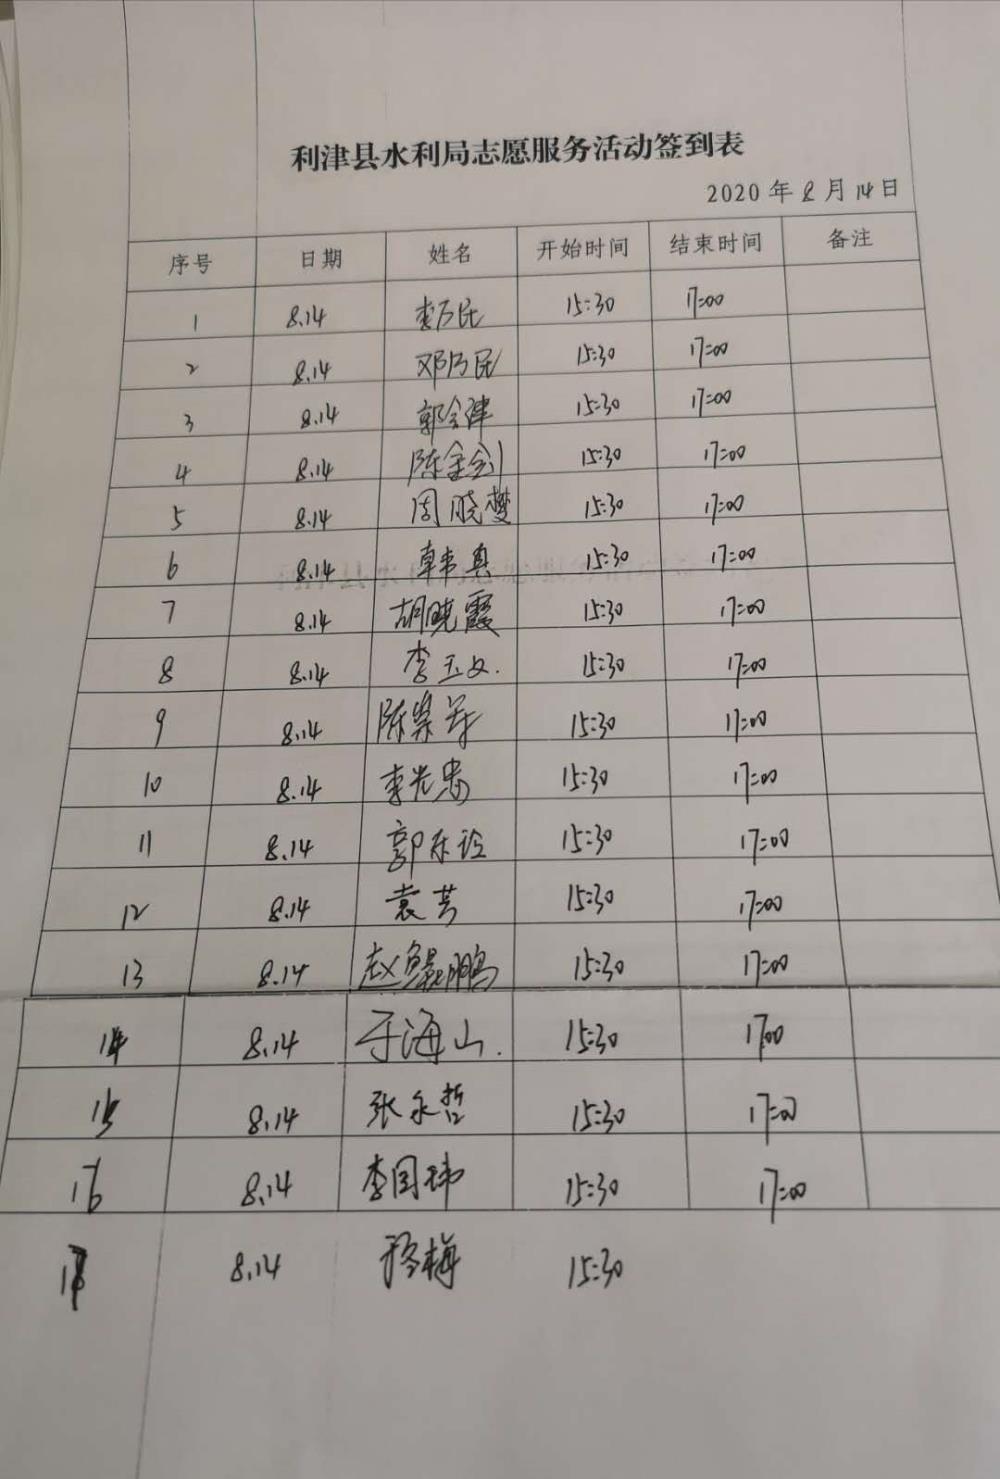 利津县水利局志愿服务活动签到表
2020年8月14日
序号 日期 姓名 开始时间 结束时间 备注
1 8.14 李万民 15:30 17:00
2 8.14 邓乃民 15:30 17:00
3 8.14 郭会津 15:30 17:00
4 8.14 陈金剑 15:30 17:00
5 8.14 周晓梦 15:30 17:00
6 8.14 韩真 15:30 17:00
7 8.14 胡晓霞 15:30 17:00
8 8.14 李玉文. 15:30 17:00
9 8.14 陈崇军 15:30 17:00
10 8.14 李光忠 15:30 17:00
11 8.14 郭东 15:30 17:00
12 8.14 袁芳 15:30 17:00
13 8.14 赵鲲鹏 15:30 17:00
14 8.14 于海山. 15:30 17:00
15 8.14 张永哲 15:30 17:00
16 8.14 李国玮 15:30 17:00
8.14 梅 15:30